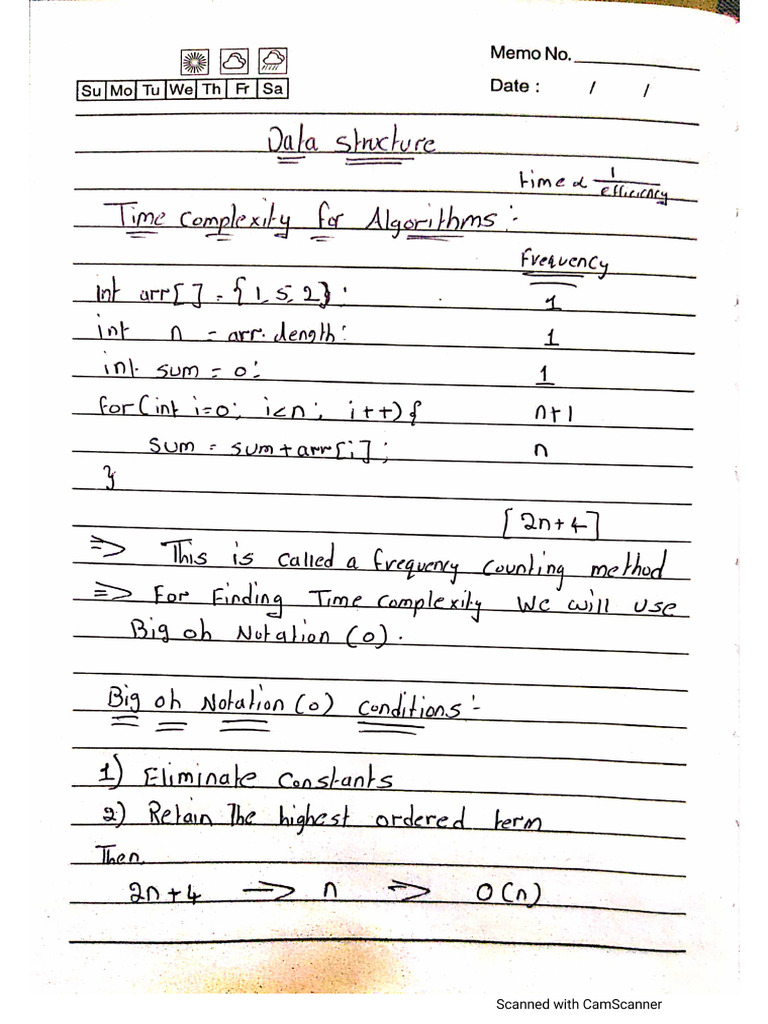 Memo No.
Su Mo Tu We Th Fr Sa
Date : / /
Data structure
time ∝ 1/efficiency
Time complexity for Algorithms:-
Frequency
int arr[] = {1, 5, 2}; 1
int n = arr.length; 1
int sum = 0; 1
for(int i=0; i<n; i++){ n+1
sum = sum+arr[i]; n
}
[2n+4]
=> This is called a frequency counting method
=> For Finding Time complexity We will use
Big oh Notation (o).
Big oh Notation (o) conditions:-
1) Eliminate constants
2) Retain The highest ordered term
Then
2n+4 => n => O(n)
Scanned with CamScanner